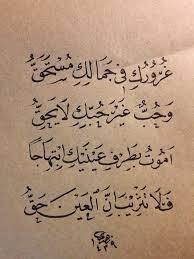 غُرُورُكِ فِي جَمَالِكِ مُسْتَحَقُّ
وَحُبٌّ غَيْرَ حُبِّكِ لَا يَحِقُّ
اَمُوتُ بِطَرْفِ عَيْنَيْكِ ابْتِهَاجًا
فَلَا تَثْرِيبَ اِنَّ الْعَيْنَ حَقُّ
١٤٣٩